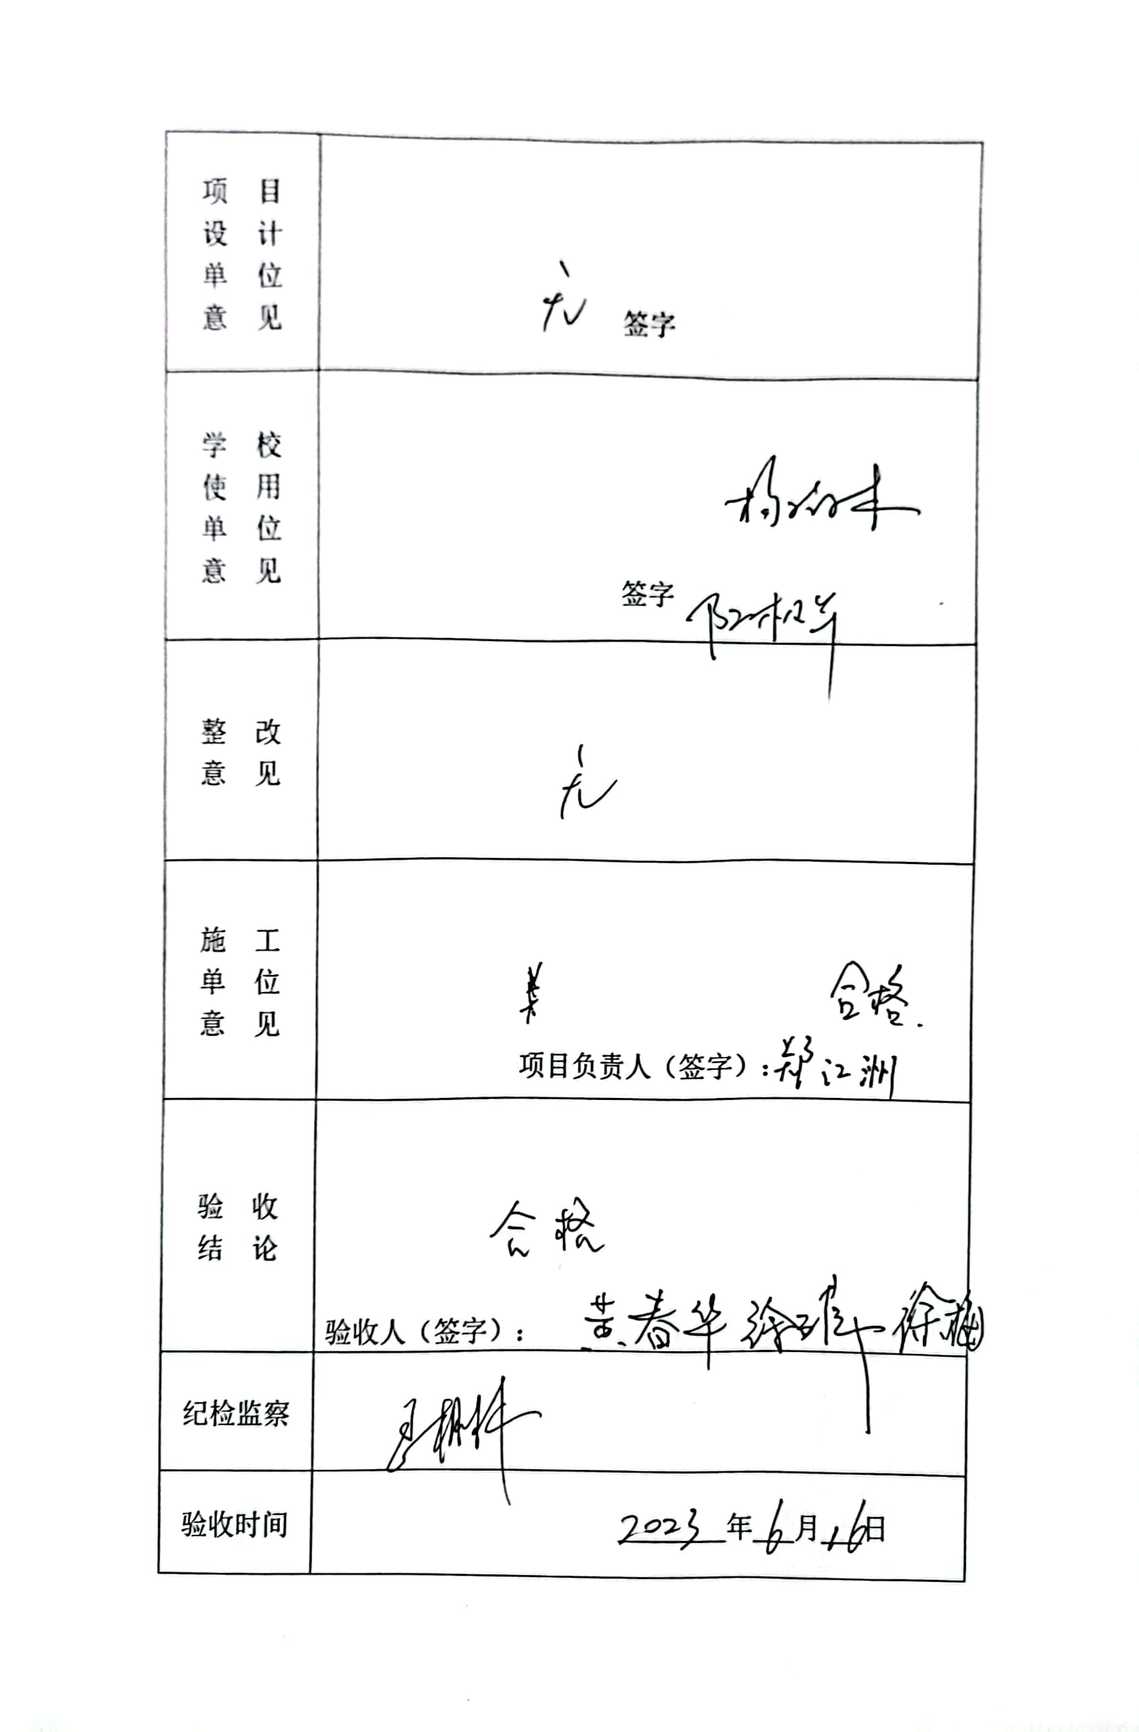 项目
设计
单位
意见
无 签字
学校
使用
单位
意见
签字
整改
意见
无
施工
单位
意见
合格.
项目负责人（签字）：郑江洲
验收
结论
合格
验收人（签字）： 黄春华 徐 徐梅
纪检监察
验收时间
2023年6月16日